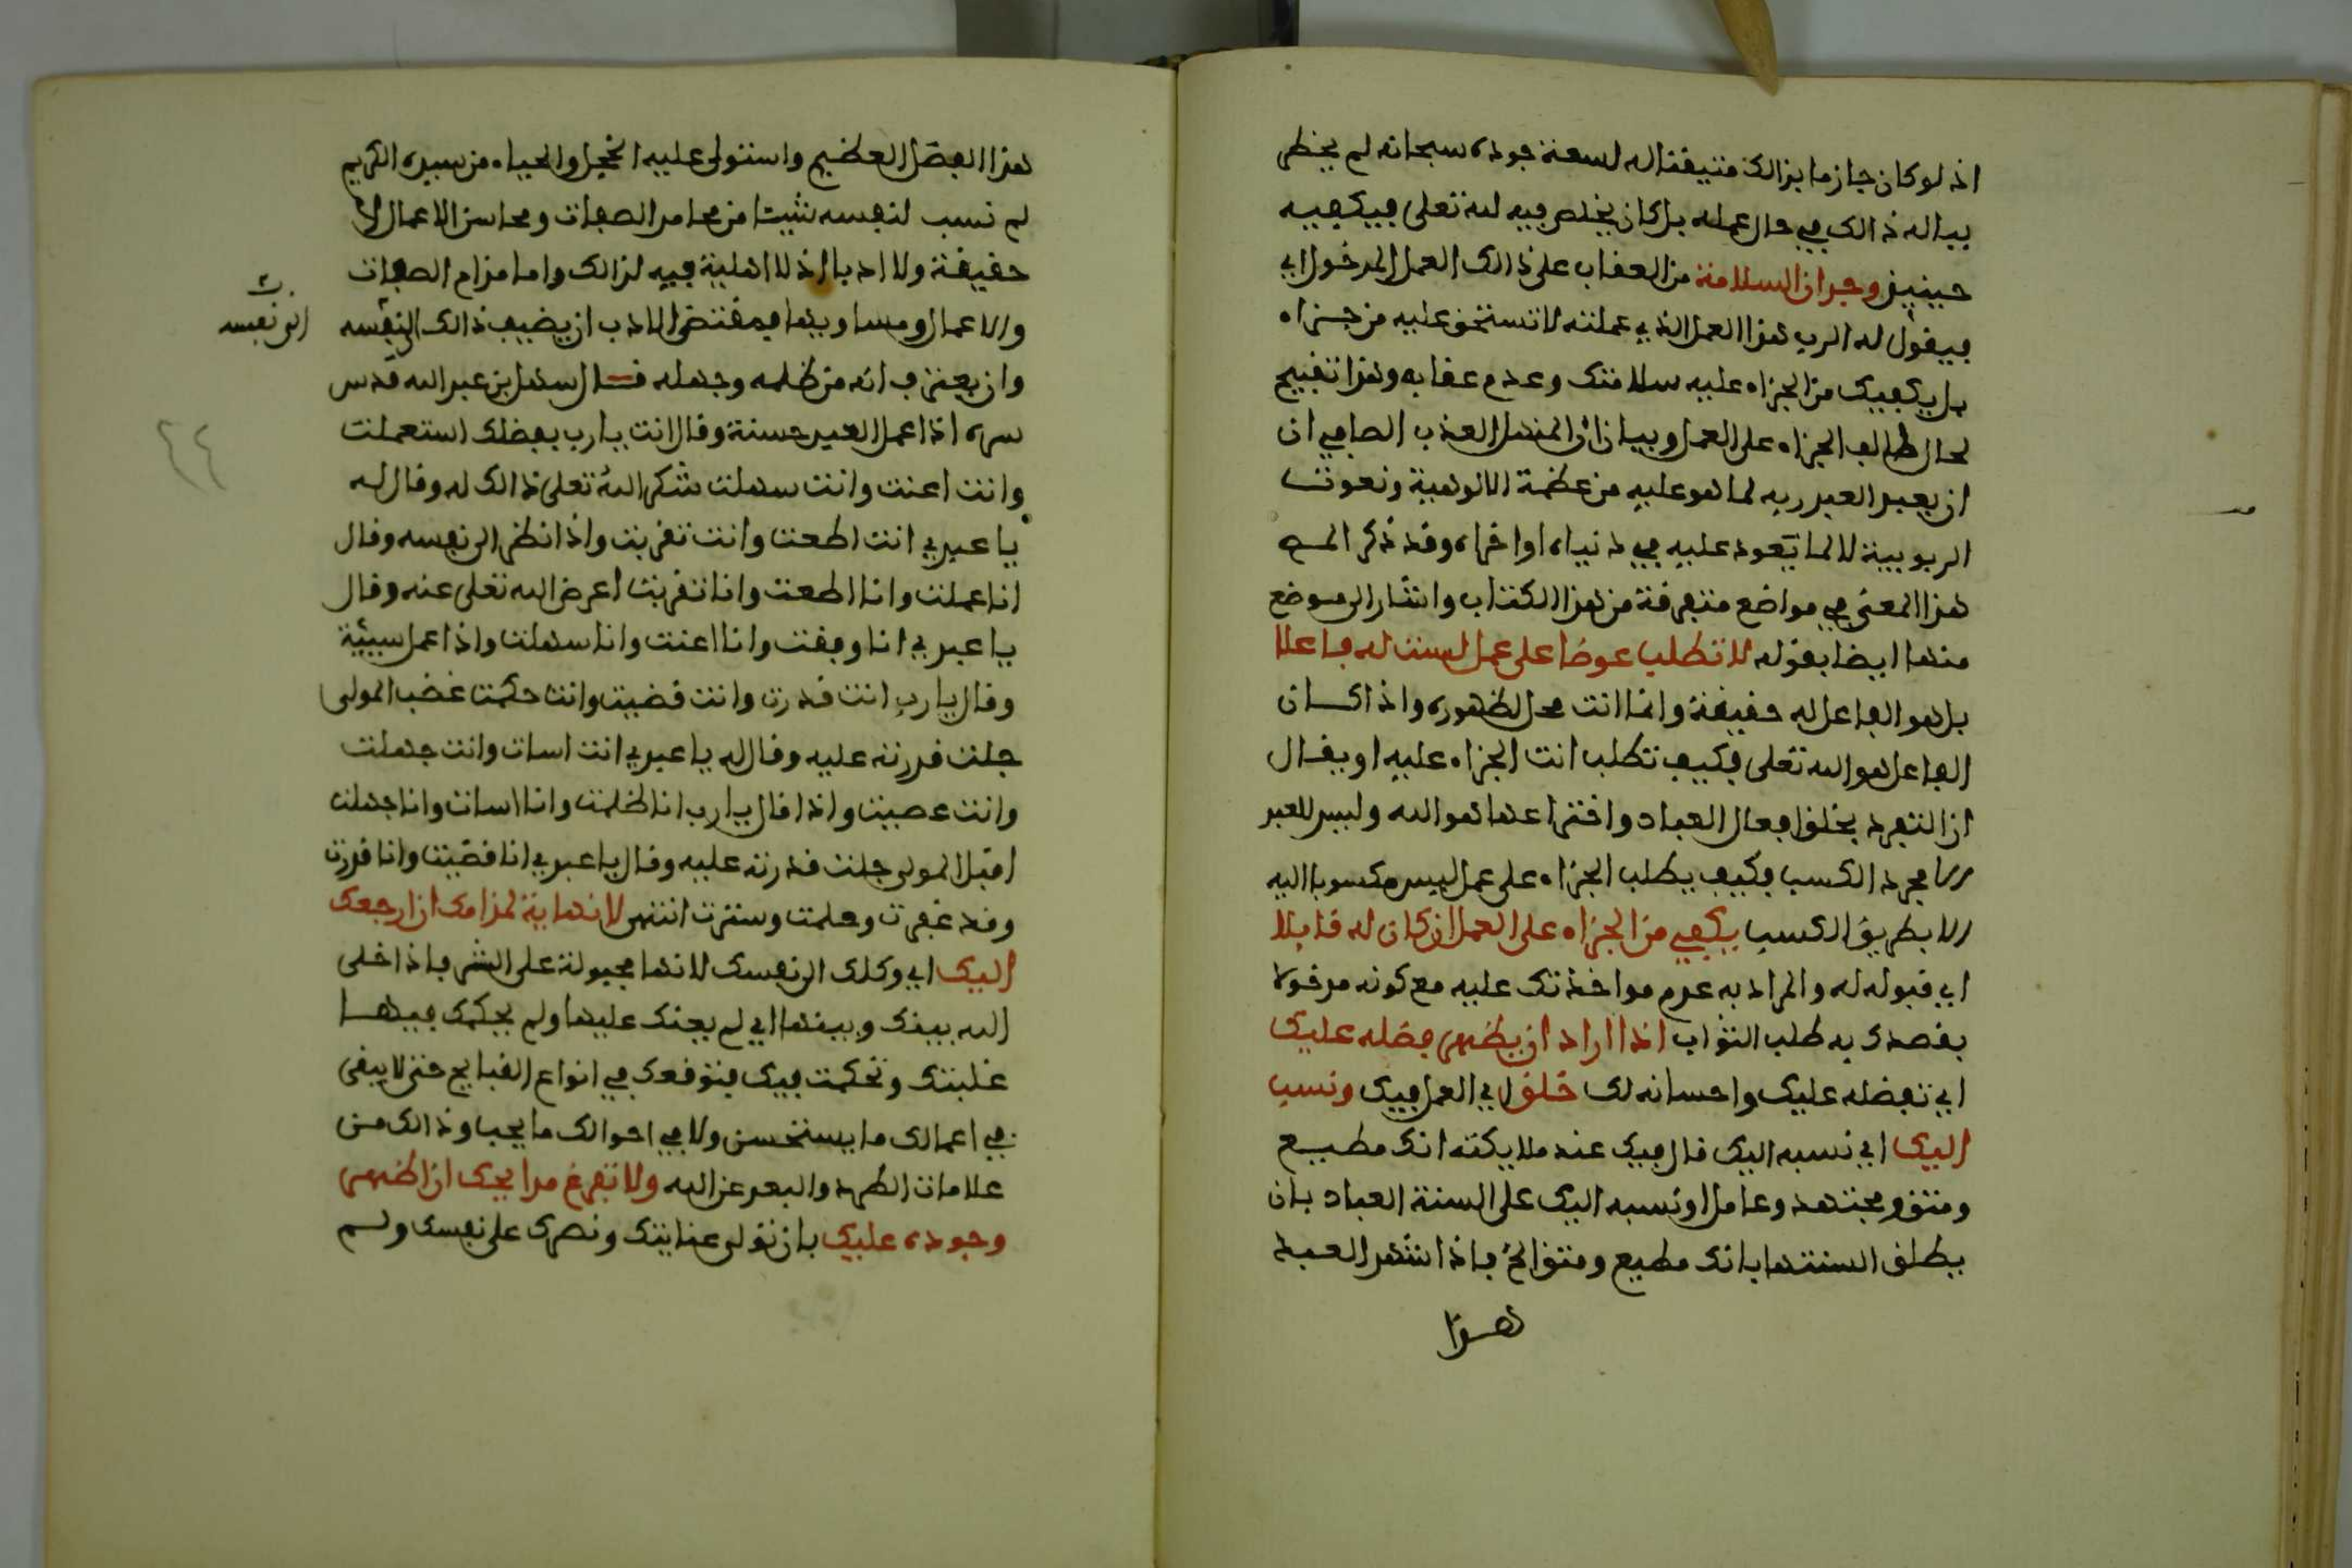 اذ لو كان جازما بذالك متيقنا له لسعة جوده سبحانه لم يخطر
بباله ذالك في حال عمله بل كان يخلص فيه لله تعلى فيكفيه
حينيذ وجدان السلامة من العقاب على ذالك العمل المدخول اي
فيقول له الرب هذا العمل الذي عملته لا تستحق عليه من جزاء
بل يكفيك من الجزاء عليه سلامتك وعدم عقابه وهذا تقبيح
لحال طالب الجزاء على العمل وبيان ان المنهل العذب الصافي ان
ان يعبد العبد ربه لما هو عليه من عظمة الالوهية ونعوت
الربوبية لا لما يعود عليه في دنياه او اخراه وقد ذكر المص
هذا المعنى في مواضع متفرقة من هذا الكتاب واشار الى موضع
منها ايضا بقوله لا تطلب عوضا على عمل لست له فاعلا
بل هو الفاعل له حقيقة وانما انت محل لظهوره واذا كان
الفاعل هو الله تعلى فكيف تطلب انت الجزاء عليه او يقال
ان المتفرد بخلق افعال العباد واختراعها هو الله وليس للعبد
الا مجرد الكسب فكيف يطلب الجزاء على عمل ليس مكسوبا اليه
الا بطريق الكسب يكفي من الجزاء على العمل ان كان له قابلا
اي قبوله له والمراد به عدم مواخذتك عليه مع كونه مدخولا
بقصدك به طلب الثواب اذا اراد ان يظهر فضله عليك
اي تفضله عليك واحسانه لك خلق اي العمل فيك ونسب
اليك اي نسبه اليك قال فيك عند ملايكته انك مطيع
ومتق ومجتهد وعامل او نسبه اليك على السنة العباد بان
يطلق السنتها بانك مطيع ومتق الخ فاذا شهد العبد
هذا
هذا الفضل العظيم واستولى عليه الخجل والحياء من سيده الكريم
لم نسب لنفسه شيئا من محامد الصفات ومحاسن الاعمال لا
حقيقة ولا ادبا اذ لا اهلية فيه لذالك واما مذام الصفات
والاعمال ومساويها فمقتضى الادب ان يضيف ذالك الى نفسه
الى نفسه
وان يعترف انه من ظلمه وجهله قال سهل بن عبد الله قدس
سره اذا عمل العبد حسنة وقال انت يا رب بفضلك استعملت
وانت اعنت وانت سهلت شكر الله تعلى ذالك له وقال له
يا عبدي انت اطعت وانت تقربت واذا نظر الى نفسه وقال
انا عملت وانا اطعت وانا تقربت اعرض الله تعلى عنه وقال
يا عبدي انا وفقت وانا اعنت وانا سهلت واذا عمل سيئة
وقال يا رب انت قدرت وانت قضيت وانت حكمت غضب المولى
جلت قدرته عليه وقال له يا عبدي انت اسات وانت جهلت
وانت عصيت واذا قال يا رب انا ظلمت وانا اسات وانا جهلت
اقبل المولى جلت قدرته عليه وقال يا عبدي انا قضيت وانا قدرت
وقد غفرت وحلمت وسترت انتهى لا نهاية لمذامك ان ارجعك
اليك اي وكلك الى نفسك لانها مجبولة على الشر فاذا خلى
الله بينك وبينها اي لم يعنك عليها ولم يحكمك فيها
غلبتك وتحكمت فيك فتوقعك في انواع القبايح حتى لا يبقى
في اعمالك ما يستحسن ولا في احوالك ما يحب وذالك من
علامات الطرد والبعد عن الله ولا تفرغ مدايحك ان اظهر
وجوده عليك بان تولى عنايتك ونصرك على نفسك ولم
٤٤